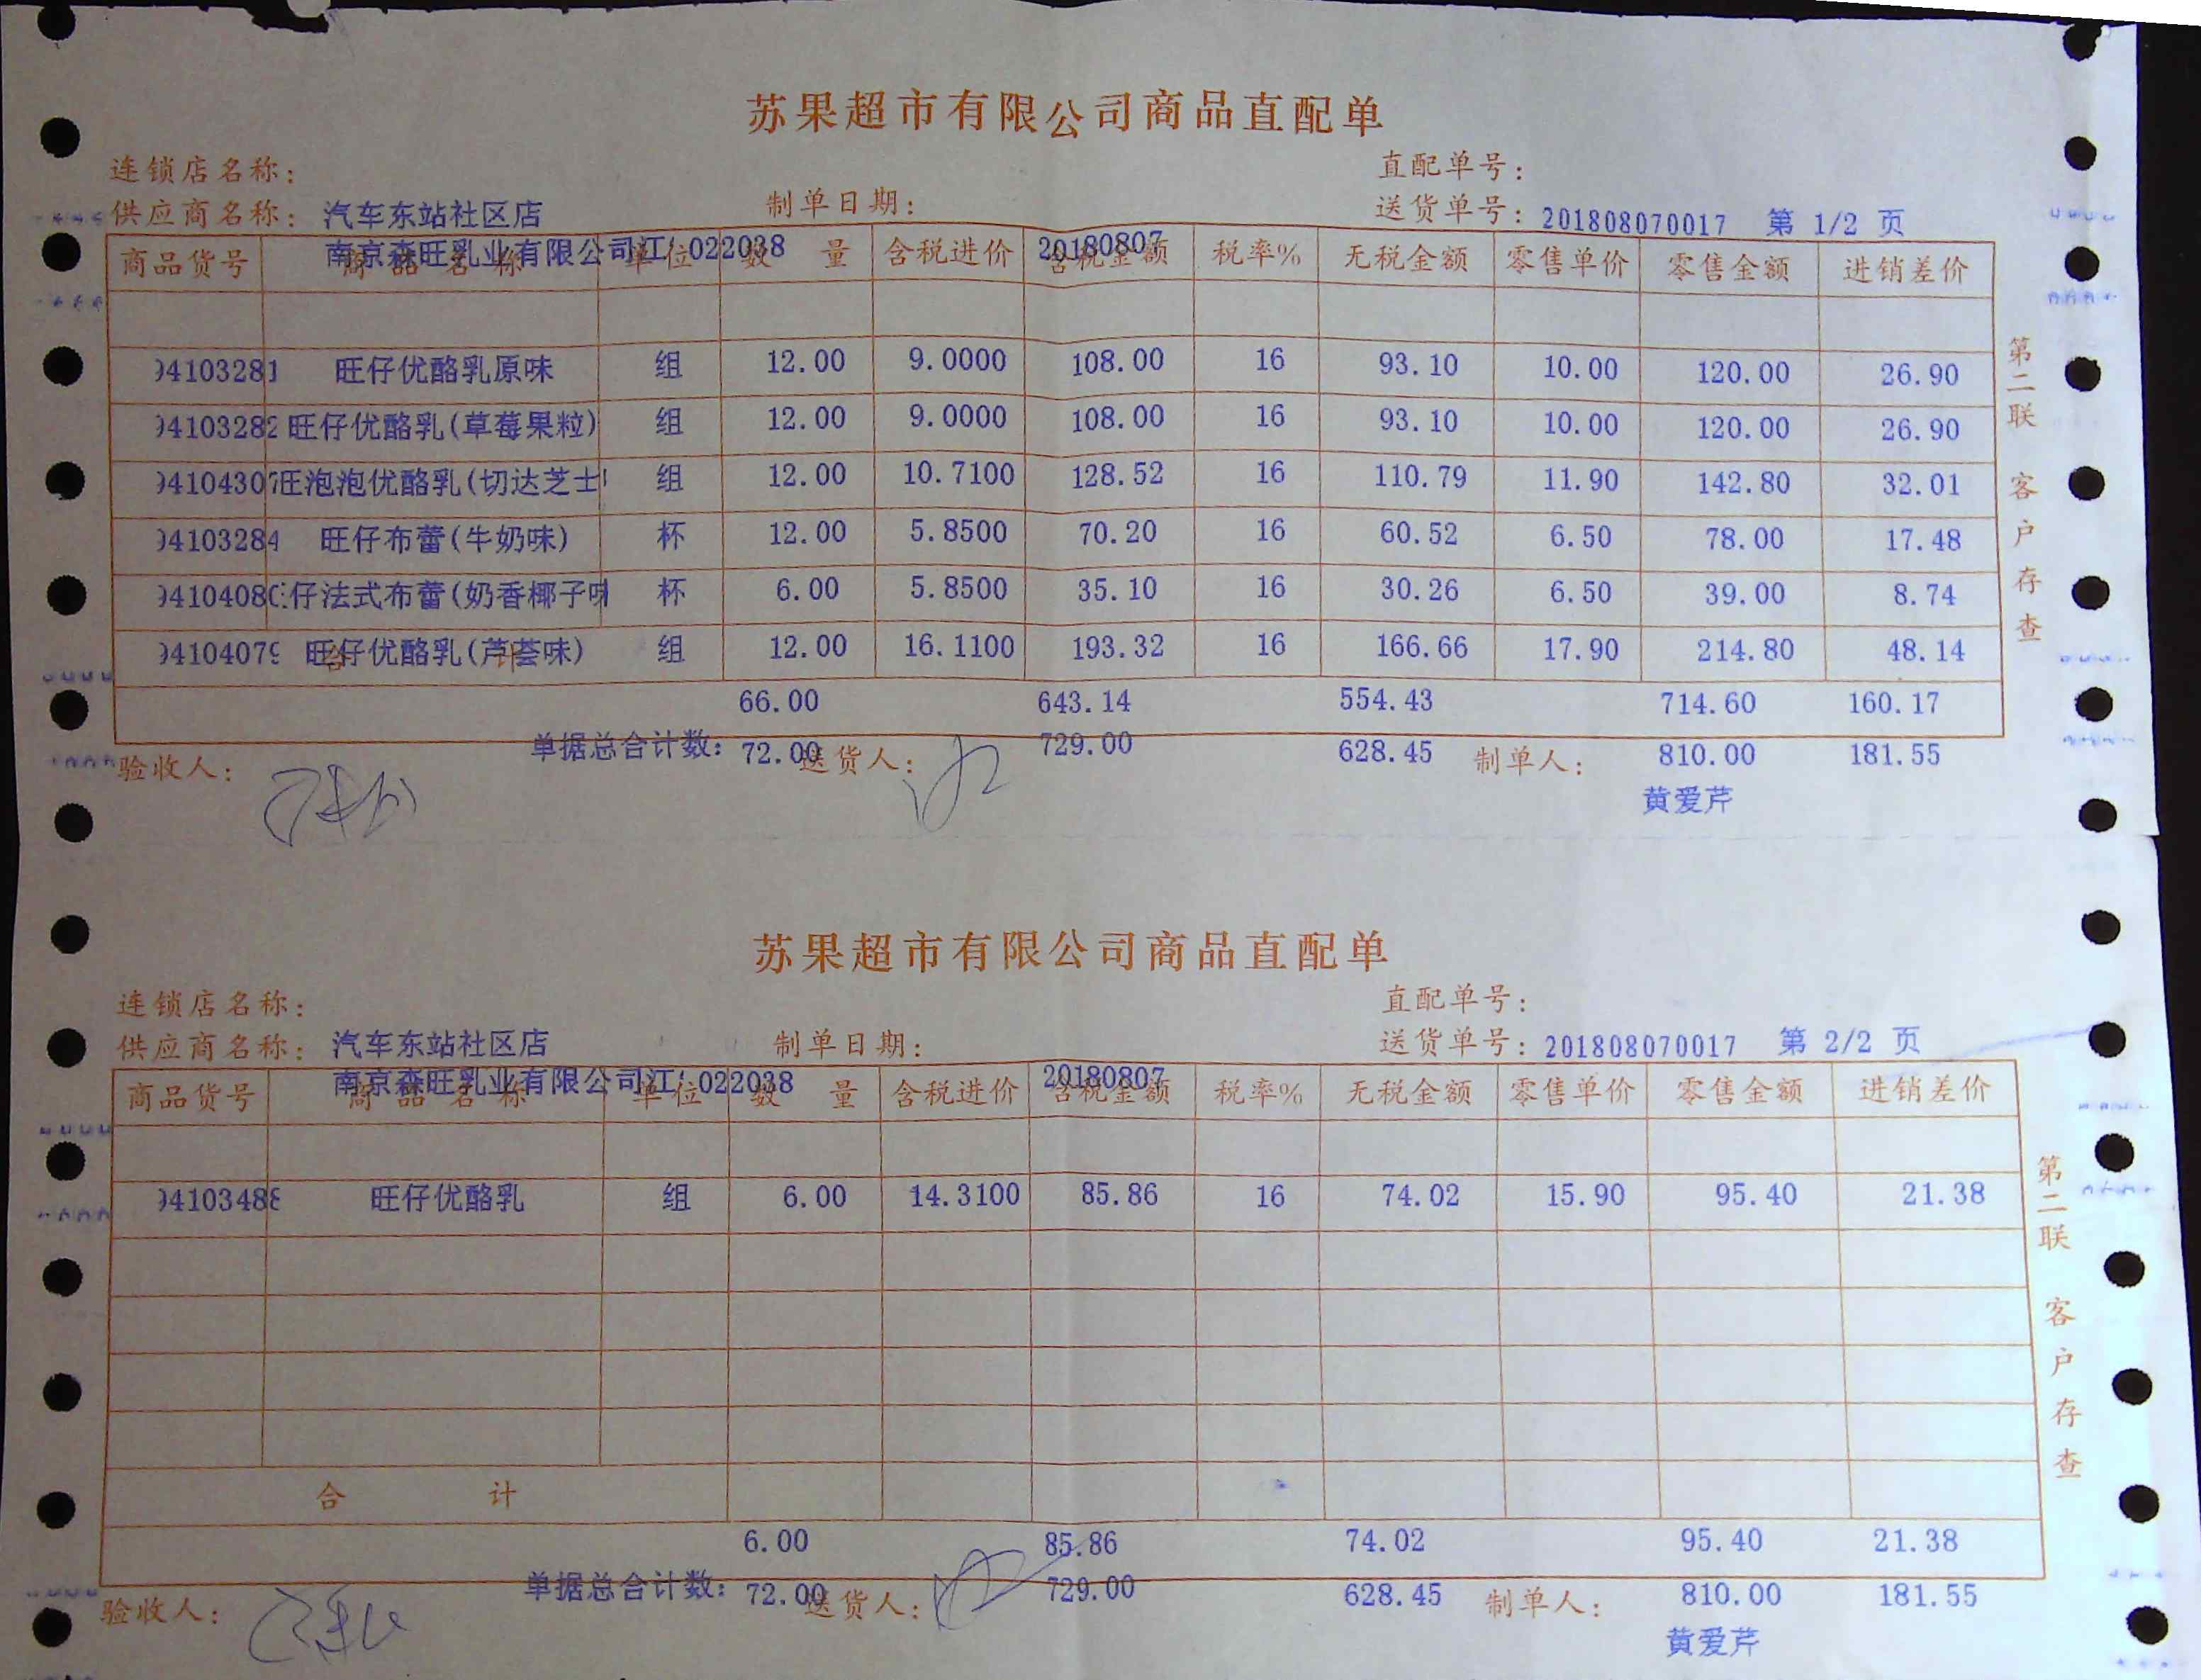 苏果超市有限公司商品直配单
连锁店名称： 直配单号：
供应商名称： 汽车东站社区店 制单日期： 送货单号：201808070017 第 1/2 页
南京森旺乳业有限公司江 022038 20180807
商品货号 商品名称 单位 数量 含税进价 含税金额 税率% 无税金额 零售单价 零售金额 进销差价
94103281 旺仔优酪乳原味 组 12.00 9.0000 108.00 16 93.10 10.00 120.00 26.90
94103282 旺仔优酪乳(草莓果粒) 组 12.00 9.0000 108.00 16 93.10 10.00 120.00 26.90
94104307 旺泡泡优酪乳(切达芝士 组 12.00 10.7100 128.52 16 110.79 11.90 142.80 32.01
94103284 旺仔布蕾(牛奶味) 杯 12.00 5.8500 70.20 16 60.52 6.50 78.00 17.48
94104080 仔法式布蕾(奶香椰子味 杯 6.00 5.8500 35.10 16 30.26 6.50 39.00 8.74
94104079 旺仔优酪乳(芦荟味) 组 12.00 16.1100 193.32 16 166.66 17.90 214.80 48.14
合计
66.00 643.14 554.43 714.60 160.17
单据总合计数：72.00 729.00 628.45 810.00 181.55
验收人： 送货人： 制单人：
黄爱芹
第二联 客户存查
苏果超市有限公司商品直配单
连锁店名称： 直配单号：
供应商名称： 汽车东站社区店 制单日期： 送货单号：201808070017 第 2/2 页
南京森旺乳业有限公司江 022038 20180807
商品货号 商品名称 单位 数量 含税进价 含税金额 税率% 无税金额 零售单价 零售金额 进销差价
94103488 旺仔优酪乳 组 6.00 14.3100 85.86 16 74.02 15.90 95.40 21.38
合计
6.00 85.86 74.02 95.40 21.38
单据总合计数：72.00 729.00 628.45 810.00 181.55
验收人： 送货人： 制单人：
黄爱芹
第二联 客户存查